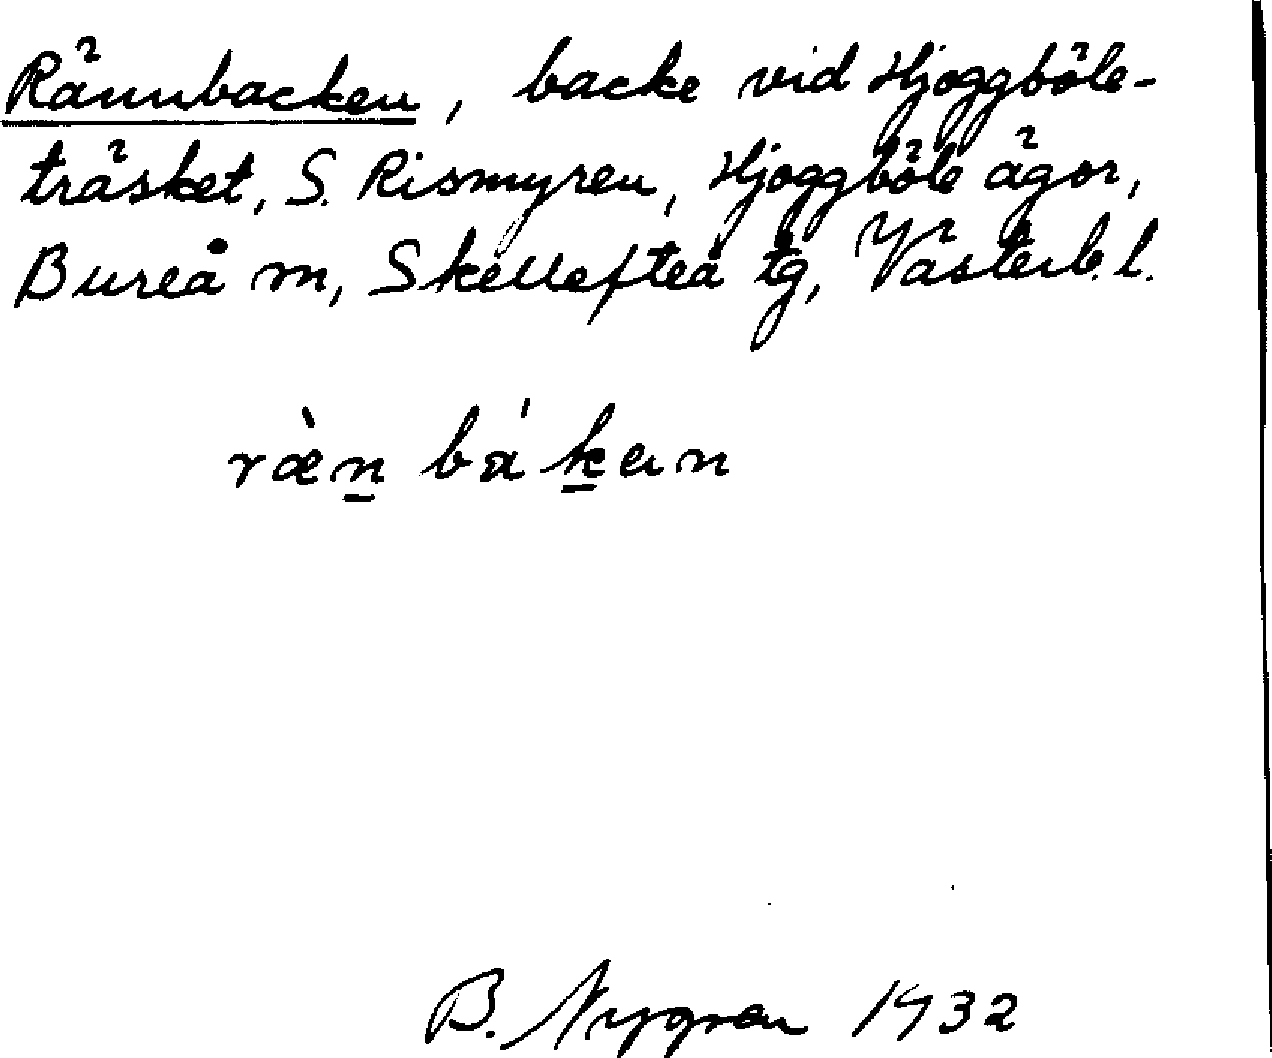 Rännbacken, backe vid Hjoggböle-
träsket, S. Rismyren, Hjoggböle ägor,
Bureå m, Skellefteå tg, Västerb. l.
ræ̀n̲ bá k̲an
B. Nygren 1932